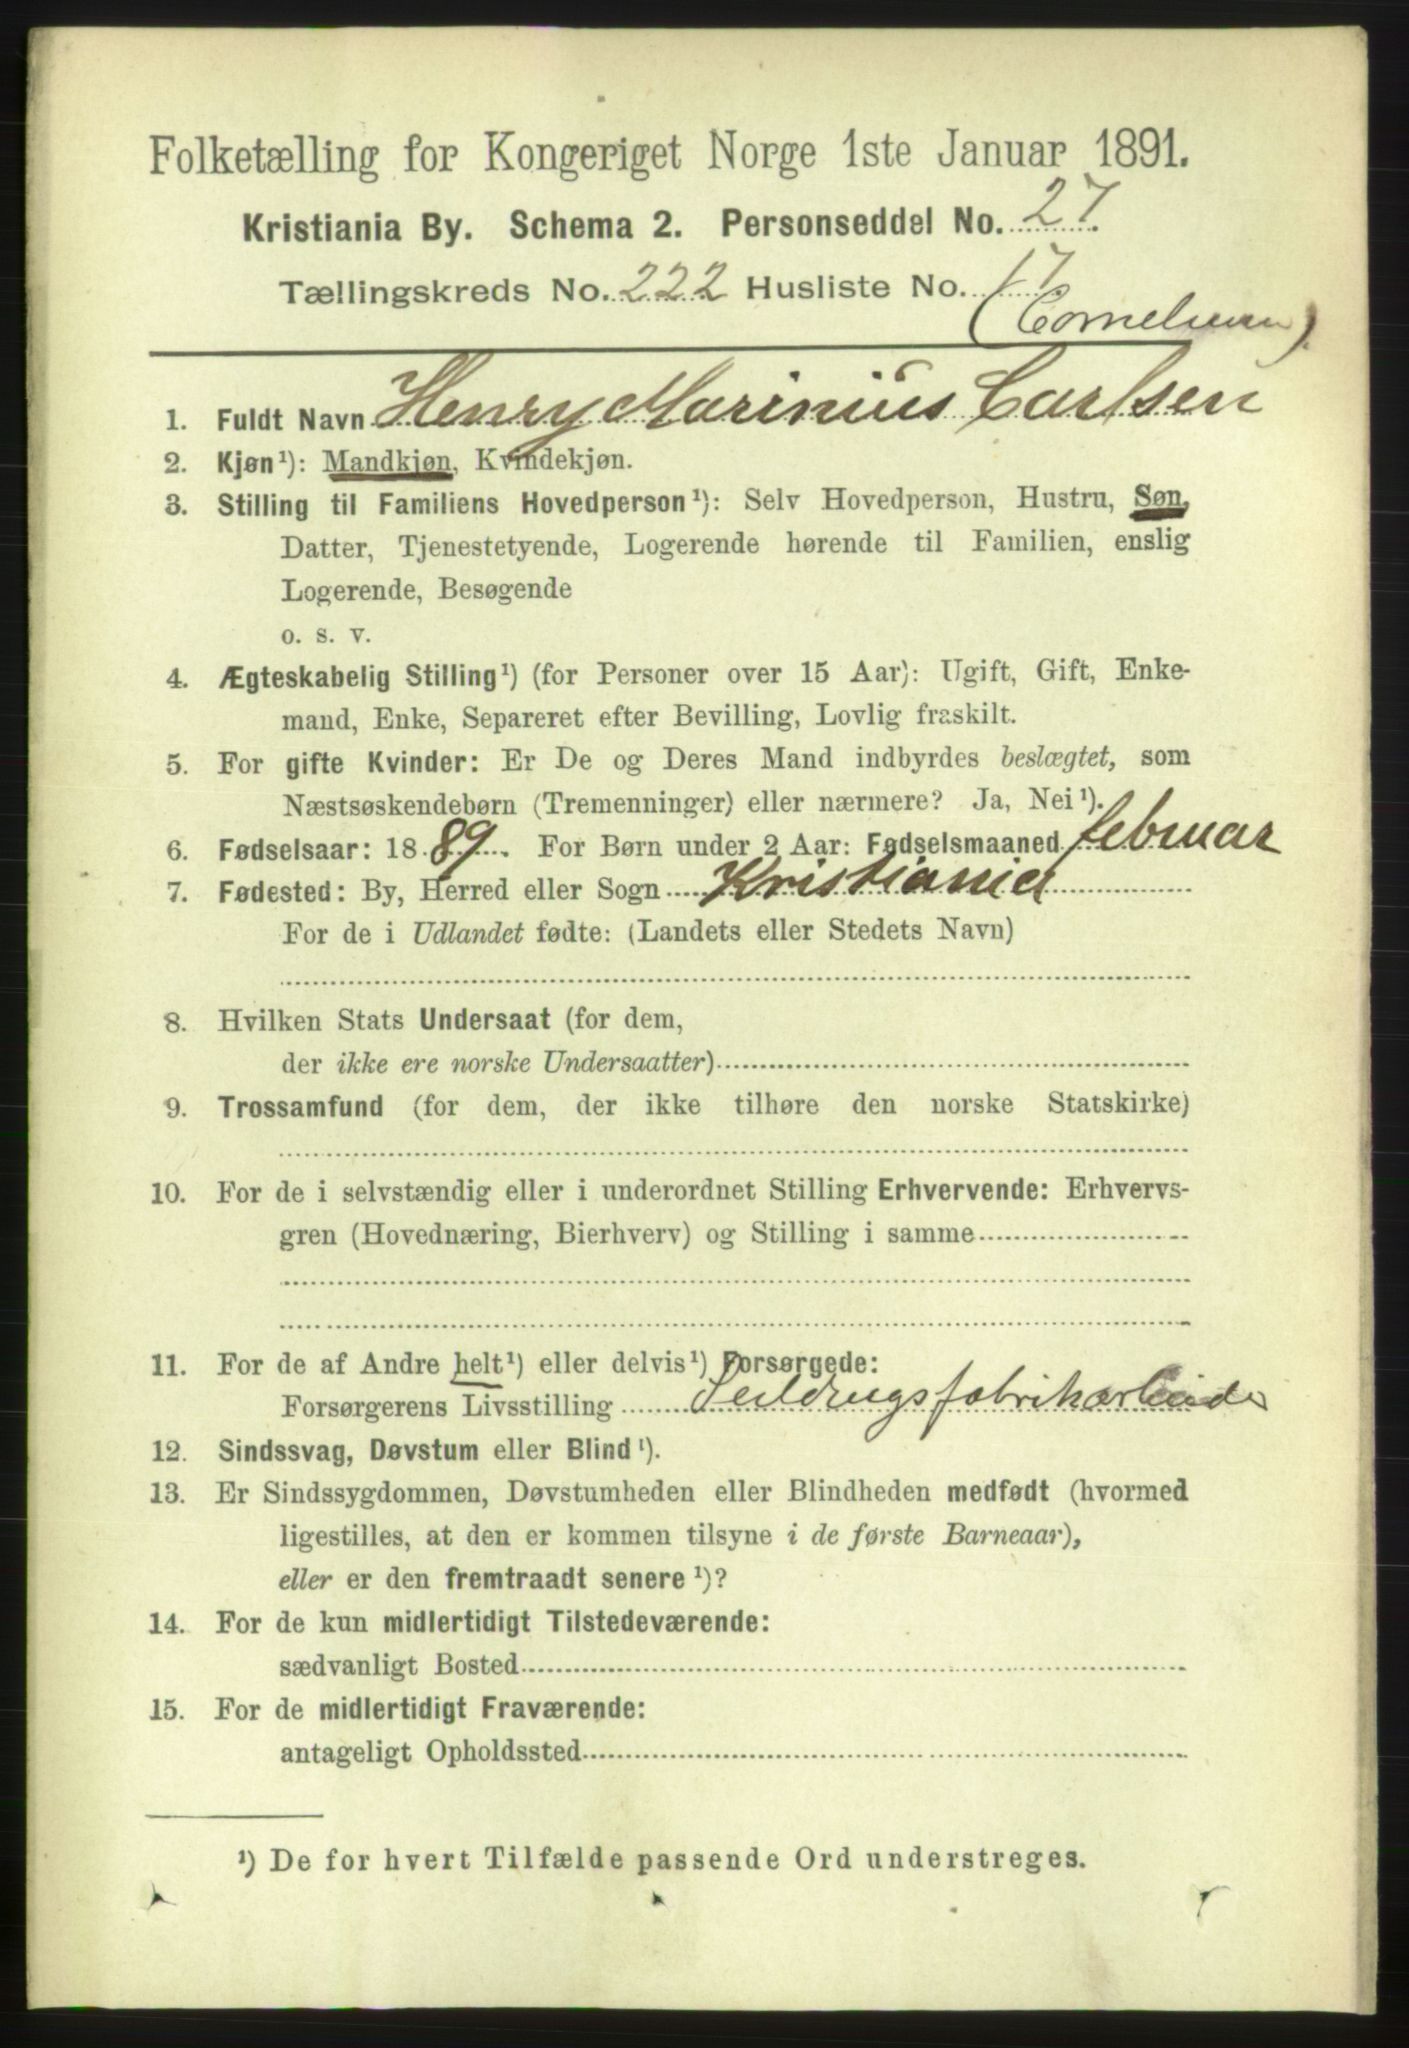 Folketælling for Kongeriget Norge 1ste Januar 1891.
Kristiania By. Schema 2. Personseddel No. 27.
Tællingskreds No. 222 Husliste No. 17
1. Fuldt Navn Henry Marinius Carlsen
2. Kjøn¹): Mandkjøn, Kvindekjøn.
3. Stilling til Familiens Hovedperson¹): Selv Hovedperson, Hustru, Søn,
Datter, Tjenestetyende, Logerende hørende til Familien, enslig
Logerende, Besøgende
o. s. v.
4. Ægteskabelig Stilling¹) (for Personer over 15 Aar): Ugift, Gift, Enke-
mand, Enke, Separeret efter Bevilling, Lovlig fraskilt.
5. For gifte Kvinder: Er De og Deres Mand indbyrdes beslægtet, som
Næstsøskendebørn (Tremenninger) eller nærmere? Ja, Nei¹).
6. Fødselsaar: 1889. For Børn under 2 Aar: Fødselsmaaned februar
7. Fødested: By, Herred eller Sogn Kristiania
For de i Udlandet fødte: (Landets eller Stedets Navn)
8. Hvilken Stats Undersaat (for dem,
der ikke ere norske Undersaatter)
9. Trossamfund (for dem, der ikke tilhøre den norske Statskirke)
10. For de i selvstændig eller i underordnet Stilling Erhvervende: Erhvervs-
gren (Hovednæring, Bierhverv) og Stilling i samme
11. For de af Andre helt¹) eller delvis¹) Forsørgede:
Forsørgerens Livsstilling Seildugsfabrikarbeider
12. Sindssvag, Døvstum eller Blind¹).
13. Er Sindssygdommen, Døvstumheden eller Blindheden medfødt (hvormed
ligestilles, at den er kommen tilsyne i de første Barneaar),
eller er den fremtraadt senere¹)?
14. For de kun midlertidigt Tilstedeværende:
sædvanligt Bosted
15. For de midlertidigt Fraværende:
antageligt Opholdssted
¹) De for hvert Tilfælde passende Ord understreges.